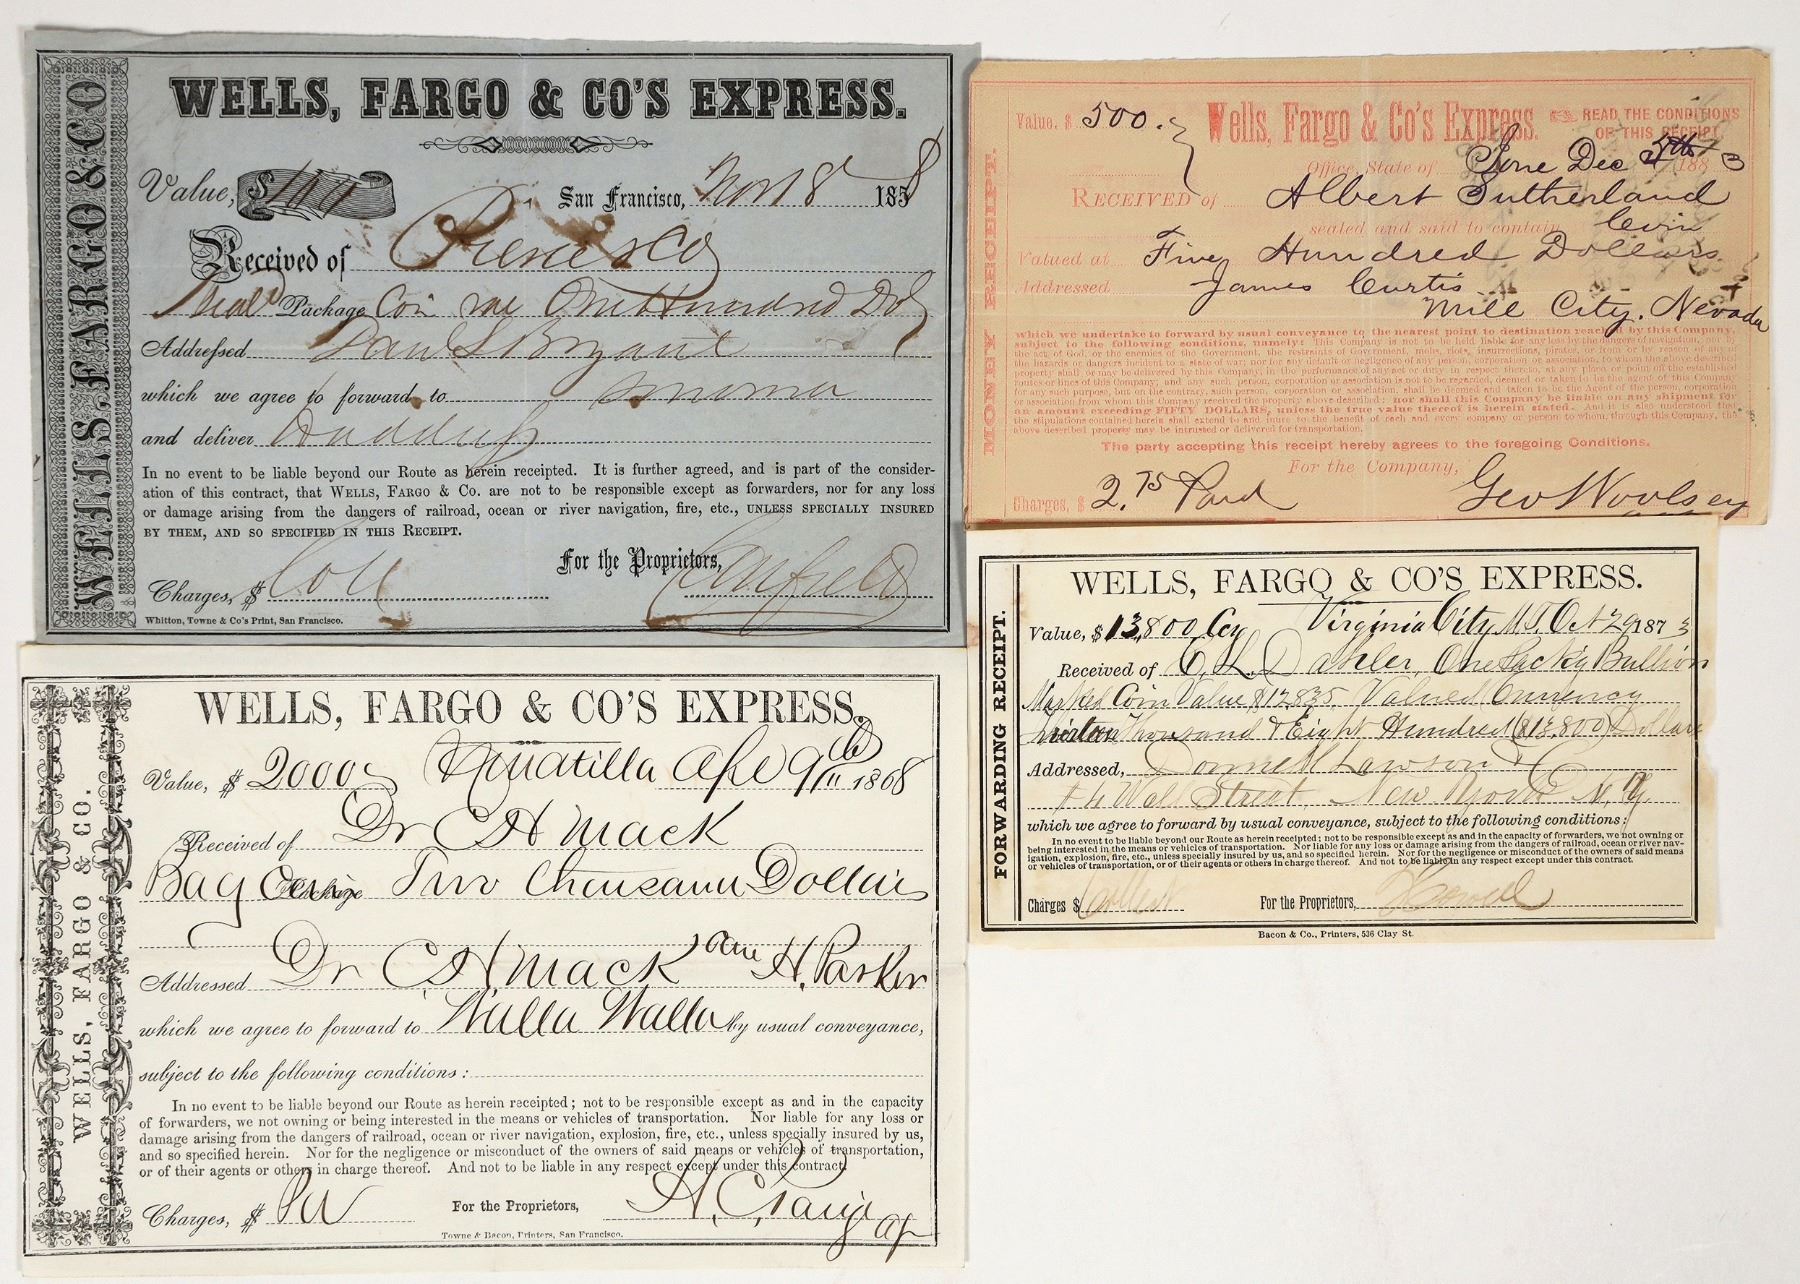 WELLS, FARGO & CO
WELLS, FARGO & CO'S EXPRESS.
Value, $ 100
San Francisco, Nov 18 1858
Received of Pierce & Co
Seal'd Package Coin One Hundred Dols
Addressed Dan L Bryant
which we agree to forward to Sonoma
and deliver
In no event to be liable beyond our Route as herein receipted. It is further agreed, and is part of the consider-
ation of this contract, that WELLS, FARGO & CO. are not to be responsible except as forwarders, nor for any loss
or damage arising from the dangers of railroad, ocean or river navigation, fire, etc., UNLESS SPECIALLY INSURED
BY THEM, AND SO SPECIFIED IN THIS RECEIPT.
For the Proprietors,
Charges, $ Coll
Whitton, Towne & Co's Print, San Francisco.
MONEY RECEIPT.
Value, $ 500.
Wells, Fargo & Co's Express.
READ THE CONDITIONS
OF THIS RECEIPT.
Office, State of Dec 5th 1883
RECEIVED of Albert Sutherland
sealed and said to contain Coin
Valued at Five Hundred Dollars
Addressed James Curtis
Mill City, Nevada
which we undertake to forward by usual conveyance to the nearest point to destination reached by this Company,
subject to the following conditions, namely: This Company is not to be held liable for any loss by the dangers of navigation, nor by
the act of God, or the enemies of the Government, the restraints of Government, mobs, riots, insurrections, pirates, or from or by reason of any of
the hazards or dangers incident to a state of war; nor for any default or negligence of any person, corporation or association, to whom the above described
property shall, or may be delivered by this Company, in the performance of any act or duty in respect thereto, at any place or point off the established
routes or lines of this Company; and any such person, corporation or association is not to be regarded, deemed or taken to be the agent of this Company
for any such purpose, but on the contrary, such person, corporation or association, shall be deemed and taken to be the Agent of the person, corporation
or association from whom this Company received the property above described: nor shall this Company be liable on any shipment for
an amount exceeding FIFTY DOLLARS, unless the true value thereof is herein stated. And it is also understood that
the stipulations contained herein shall extend to and inure to the benefit of each and every company or person to whom, through this Company, the
above described property may be intrusted or delivered for transportation.
The party accepting this receipt hereby agrees to the foregoing Conditions.
For the Company,
Charges, $ 2.75 Paid Geo Woolsey
WELLS, FARGO & CO.
WELLS, FARGO & CO'S EXPRESS.
Value, $ 2000 Umatilla Apl 9th 1868
Received of Dr C H Mack
Bag Coin Package Two Thousand Dollars
Addressed Dr C. H. Mack care H. Parker
which we agree to forward to Walla Walla by usual conveyance,
subject to the following conditions:
In no event to be liable beyond our Route as herein receipted; not to be responsible except as and in the capacity
of forwarders, we not owning or being interested in the means or vehicles of transportation. Nor liable for any loss or
damage arising from the dangers of railroad, ocean or river navigation, explosion, fire, etc., unless specially insured by us,
and so specified herein. Nor for the negligence or misconduct of the owners of said means or vehicles of transportation,
or of their agents or others in charge thereof. And not to be liable in any respect except under this contract.
Charges, $ Pd For the Proprietors, H. C. Paige Ag
Towne & Bacon, Printers, San Francisco.
FORWARDING RECEIPT.
WELLS, FARGO & CO'S EXPRESS.
Value, $ 13,800 Ccy Virginia City M.T. Oct 29 1873
Received of C. L. Dahler, One Packg Bullion
Marked Coin Value $12835, Valued Currency
Thirteen Thousand & Eight Hundred ($13,800) Dollars
Addressed, Donnell Lawson & Co
# 4 Wall Street, New York N.Y.
which we agree to forward by usual conveyance, subject to the following conditions:
In no event to be liable beyond our Route as herein receipted; not to be responsible except as and in the capacity of forwarders, we not owning or
being interested in the means or vehicles of transportation. Nor liable for any loss or damage arising from the dangers of railroad, ocean or river nav-
igation, explosion, fire, etc., unless specially insured by us, and so specified herein. Nor for the negligence or misconduct of the owners of said means
or vehicles of transportation, or of their agents or others in charge thereof. And not to be liable in any respect except under this contract.
Charges $ Collect For the Proprietors,
Bacon & Co., Printers, 536 Clay St.